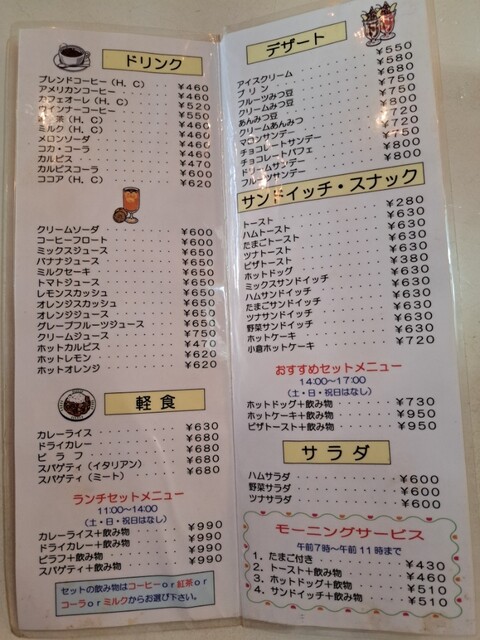 ドリンク
ブレンドコーヒー（H、C）・・・¥460
アメリカンコーヒー（H、C）・・・¥460
カフェオーレ（H、C）・・・¥520
ウインナーコーヒー・・・¥550
紅　茶（H、C）・・・¥460
ミルク（H、C）・・・¥460
メロンソーダ・・・¥460
コカ・コーラ・・・¥460
カルピス・・・¥470
カルピスコーラ・・・¥600
ココア（H、C）・・・¥620
クリームソーダ・・・¥600
コーヒーフロート・・・¥600
ミックスジュース・・・¥650
バナナジュース・・・¥650
ミルクセーキ・・・¥650
トマトジュース・・・¥650
レモンスカッシュ・・・¥650
オレンジスカッシュ・・・¥650
オレンジジュース・・・¥650
グレープフルーツジュース・・・¥650
クリームジュース・・・¥750
ホットカルピス・・・¥470
ホットレモン・・・¥620
ホットオレンジ・・・¥620
軽 食
カレーライス・・・¥630
ドライカレー・・・¥680
ピ ラ フ・・・¥680
スパゲティ（イタリアン）・・・¥680
スパゲティ（ミート）・・・¥680
ランチセットメニュー
11:00～14:00
（土・日・祝日はなし）
カレーライス＋飲み物・・・¥990
ドライカレー＋飲み物・・・¥990
ピラフ＋飲み物・・・¥990
スパゲティ＋飲み物・・・¥990
セットの飲み物はコーヒーor紅茶or
コーラorミルクからお選び下さい。
デザート
アイスクリーム・・・¥550
プ リ ン・・・¥580
フルーツみつ豆・・・¥680
クリームみつ豆・・・¥750
あんみつ豆・・・¥750
クリームあんみつ・・・¥800
マロンサンデー・・・¥720
チョコレートサンデー・・・¥720
チョコレートパフェ・・・¥750
ドリームサンデー・・・¥800
フルーツサンデー・・・¥800
サンドイッチ・スナック
トースト・・・¥280
ハムトースト・・・¥630
たまごトースト・・・¥630
ツナトースト・・・¥630
ピザトースト・・・¥630
ホットドッグ・・・¥380
ミックスサンドイッチ・・・¥630
ハムサンドイッチ・・・¥630
たまごサンドイッチ・・・¥630
ツナサンドイッチ・・・¥630
野菜サンドイッチ・・・¥630
ホットケーキ・・・¥630
小倉ホットケーキ・・・¥720
おすすめセットメニュー
14:00～17:00
（土・日・祝日はなし）
ホットドッグ＋飲み物・・・¥730
ホットケーキ＋飲み物・・・¥950
ピザトースト＋飲み物・・・¥950
サ ラ ダ
ハムサラダ・・・¥600
野菜サラダ・・・¥600
ツナサラダ・・・¥600
モーニングサービス
午前7時～午前11時まで
1．たまご付き・・・¥430
2．トースト＋飲み物・・・¥460
3．ホットドッグ＋飲み物・・・¥510
4．サンドイッチ＋飲み物・・・¥510